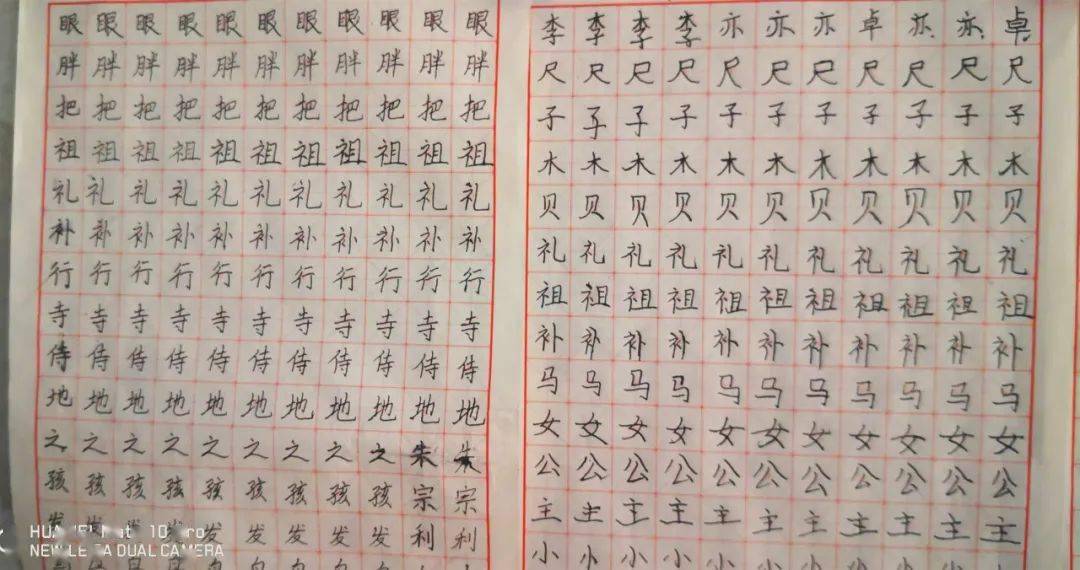 眼眼眼眼眼眼眼眼眼眼眼
胖胖胖胖胖胖胖胖胖胖胖
把把把把把把把把把把把
祖祖祖祖祖祖祖祖祖祖祖
礼礼礼礼礼礼礼礼礼礼礼
补补补补补补补补补补补
行行行行行行行行行行行
寺寺寺寺寺寺寺寺寺寺寺
侍侍侍侍侍侍侍侍侍侍侍
地地地地地地地地地地地
之之之之之之之之之朱朱
孩孩孩孩孩孩孩孩孩宗宗
发发发发发发发发利利
李李李李亦亦亦卓亦亦卓
尺尺尺尺尺尺尺尺尺尺尺
子子子子子子子子子子子
木木木木木木木木木木木
贝贝贝贝贝贝贝贝贝贝贝
礼礼礼礼礼礼礼礼礼礼礼
祖祖祖祖祖祖祖祖祖祖祖
补补补补补补补补补补补
马马马马马马马马马马马
女女女女女女女女女女女
公公公公公公公公公公公
主主主主主主主主主主主
小小小小小小小小小小小
NEW LE CA DUAL CAMERA